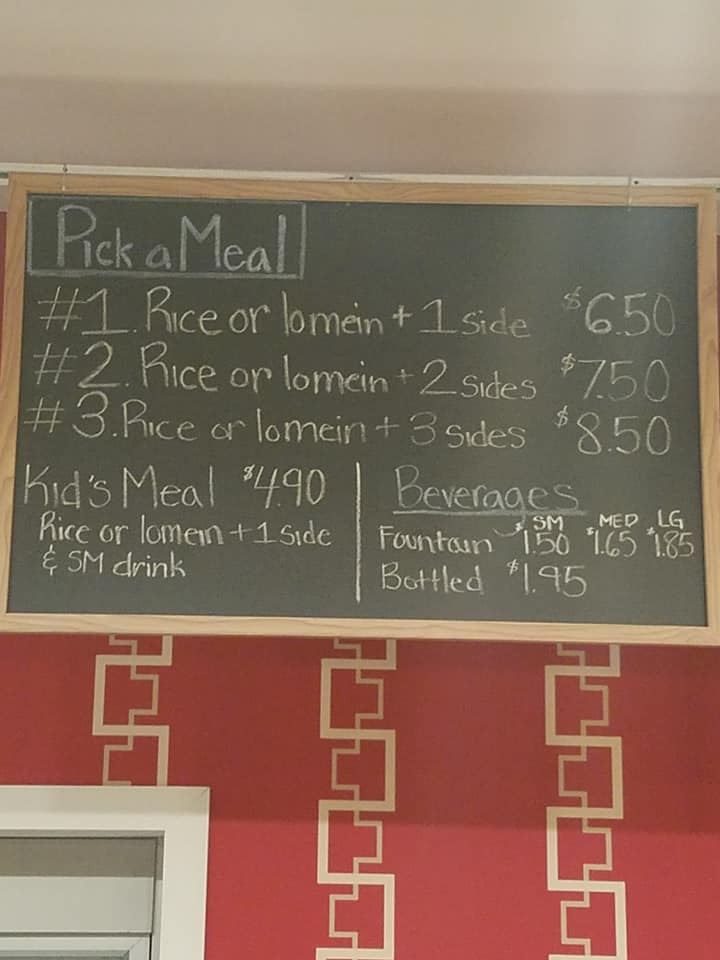 Pick a Meal
#1. Rice or lomein + 1 side $6.50
#2. Rice or lomein + 2 sides $7.50
#3. Rice or lomein + 3 sides $8.50
Kid's Meal $4.90
Rice or lomein + 1 side
& SM drink
Beverages
SM MED LG
Fountain $1.50 $1.65 $1.85
Bottled $1.95